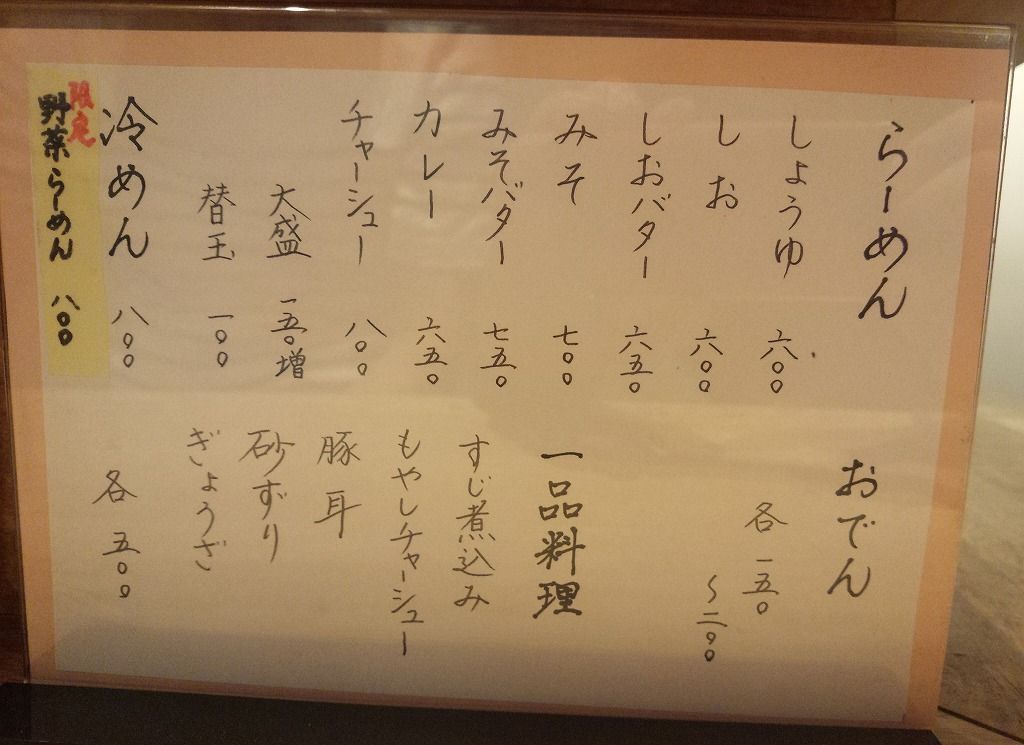 らーめん
しょうゆ 六〇〇
しお 六〇〇
しおバター 六五〇
みそ 七〇〇
みそバター 七五〇
カレー 六五〇
チャーシュー 八〇〇
大盛 一五〇増
替玉 一〇〇
冷めん 八〇〇
限定
野菜らーめん 八〇〇
おでん
各 一五〇
〜二〇〇
一品料理
すじ煮込み
もやしチャーシュー
豚耳
砂ずり
ぎょうざ
各 五〇〇